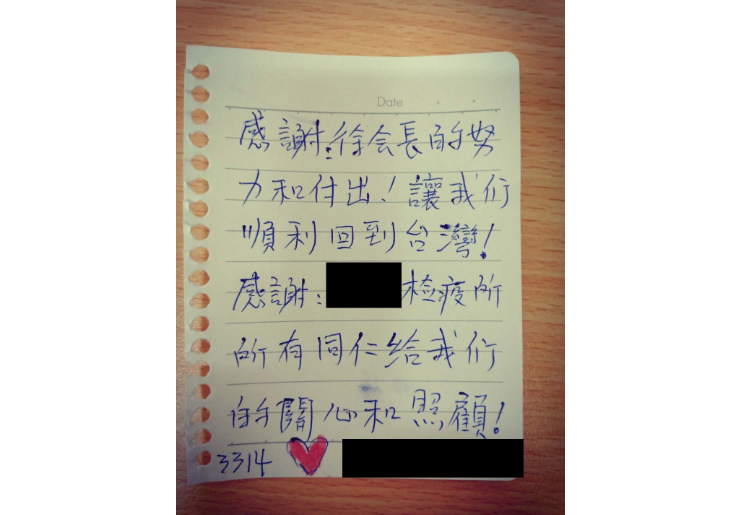 Date
感謝:徐会長的努
力和付出!讓我们
順利回到台灣!
感謝:檢疫所
所有同仁给我们
的關心和照顧!
3314